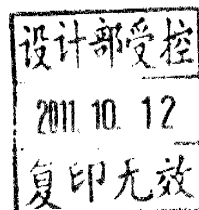 设计部受控
2011.10.12
复印无效